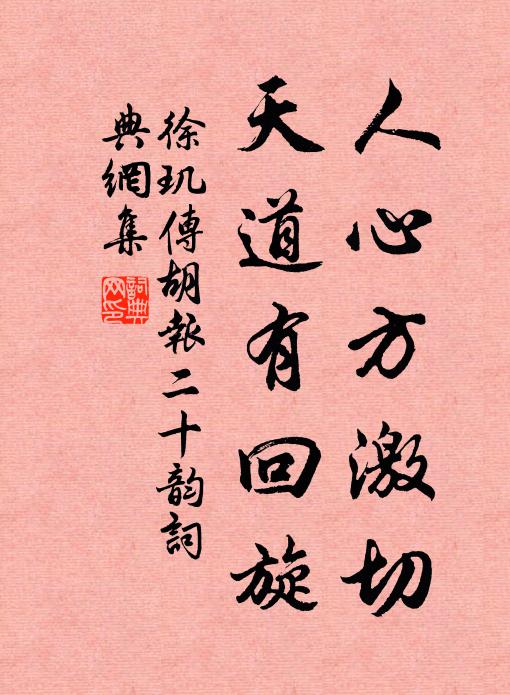 人心方激切
天道有回旋
徐玑傳胡報二十韵詞
典網集
詞典網印